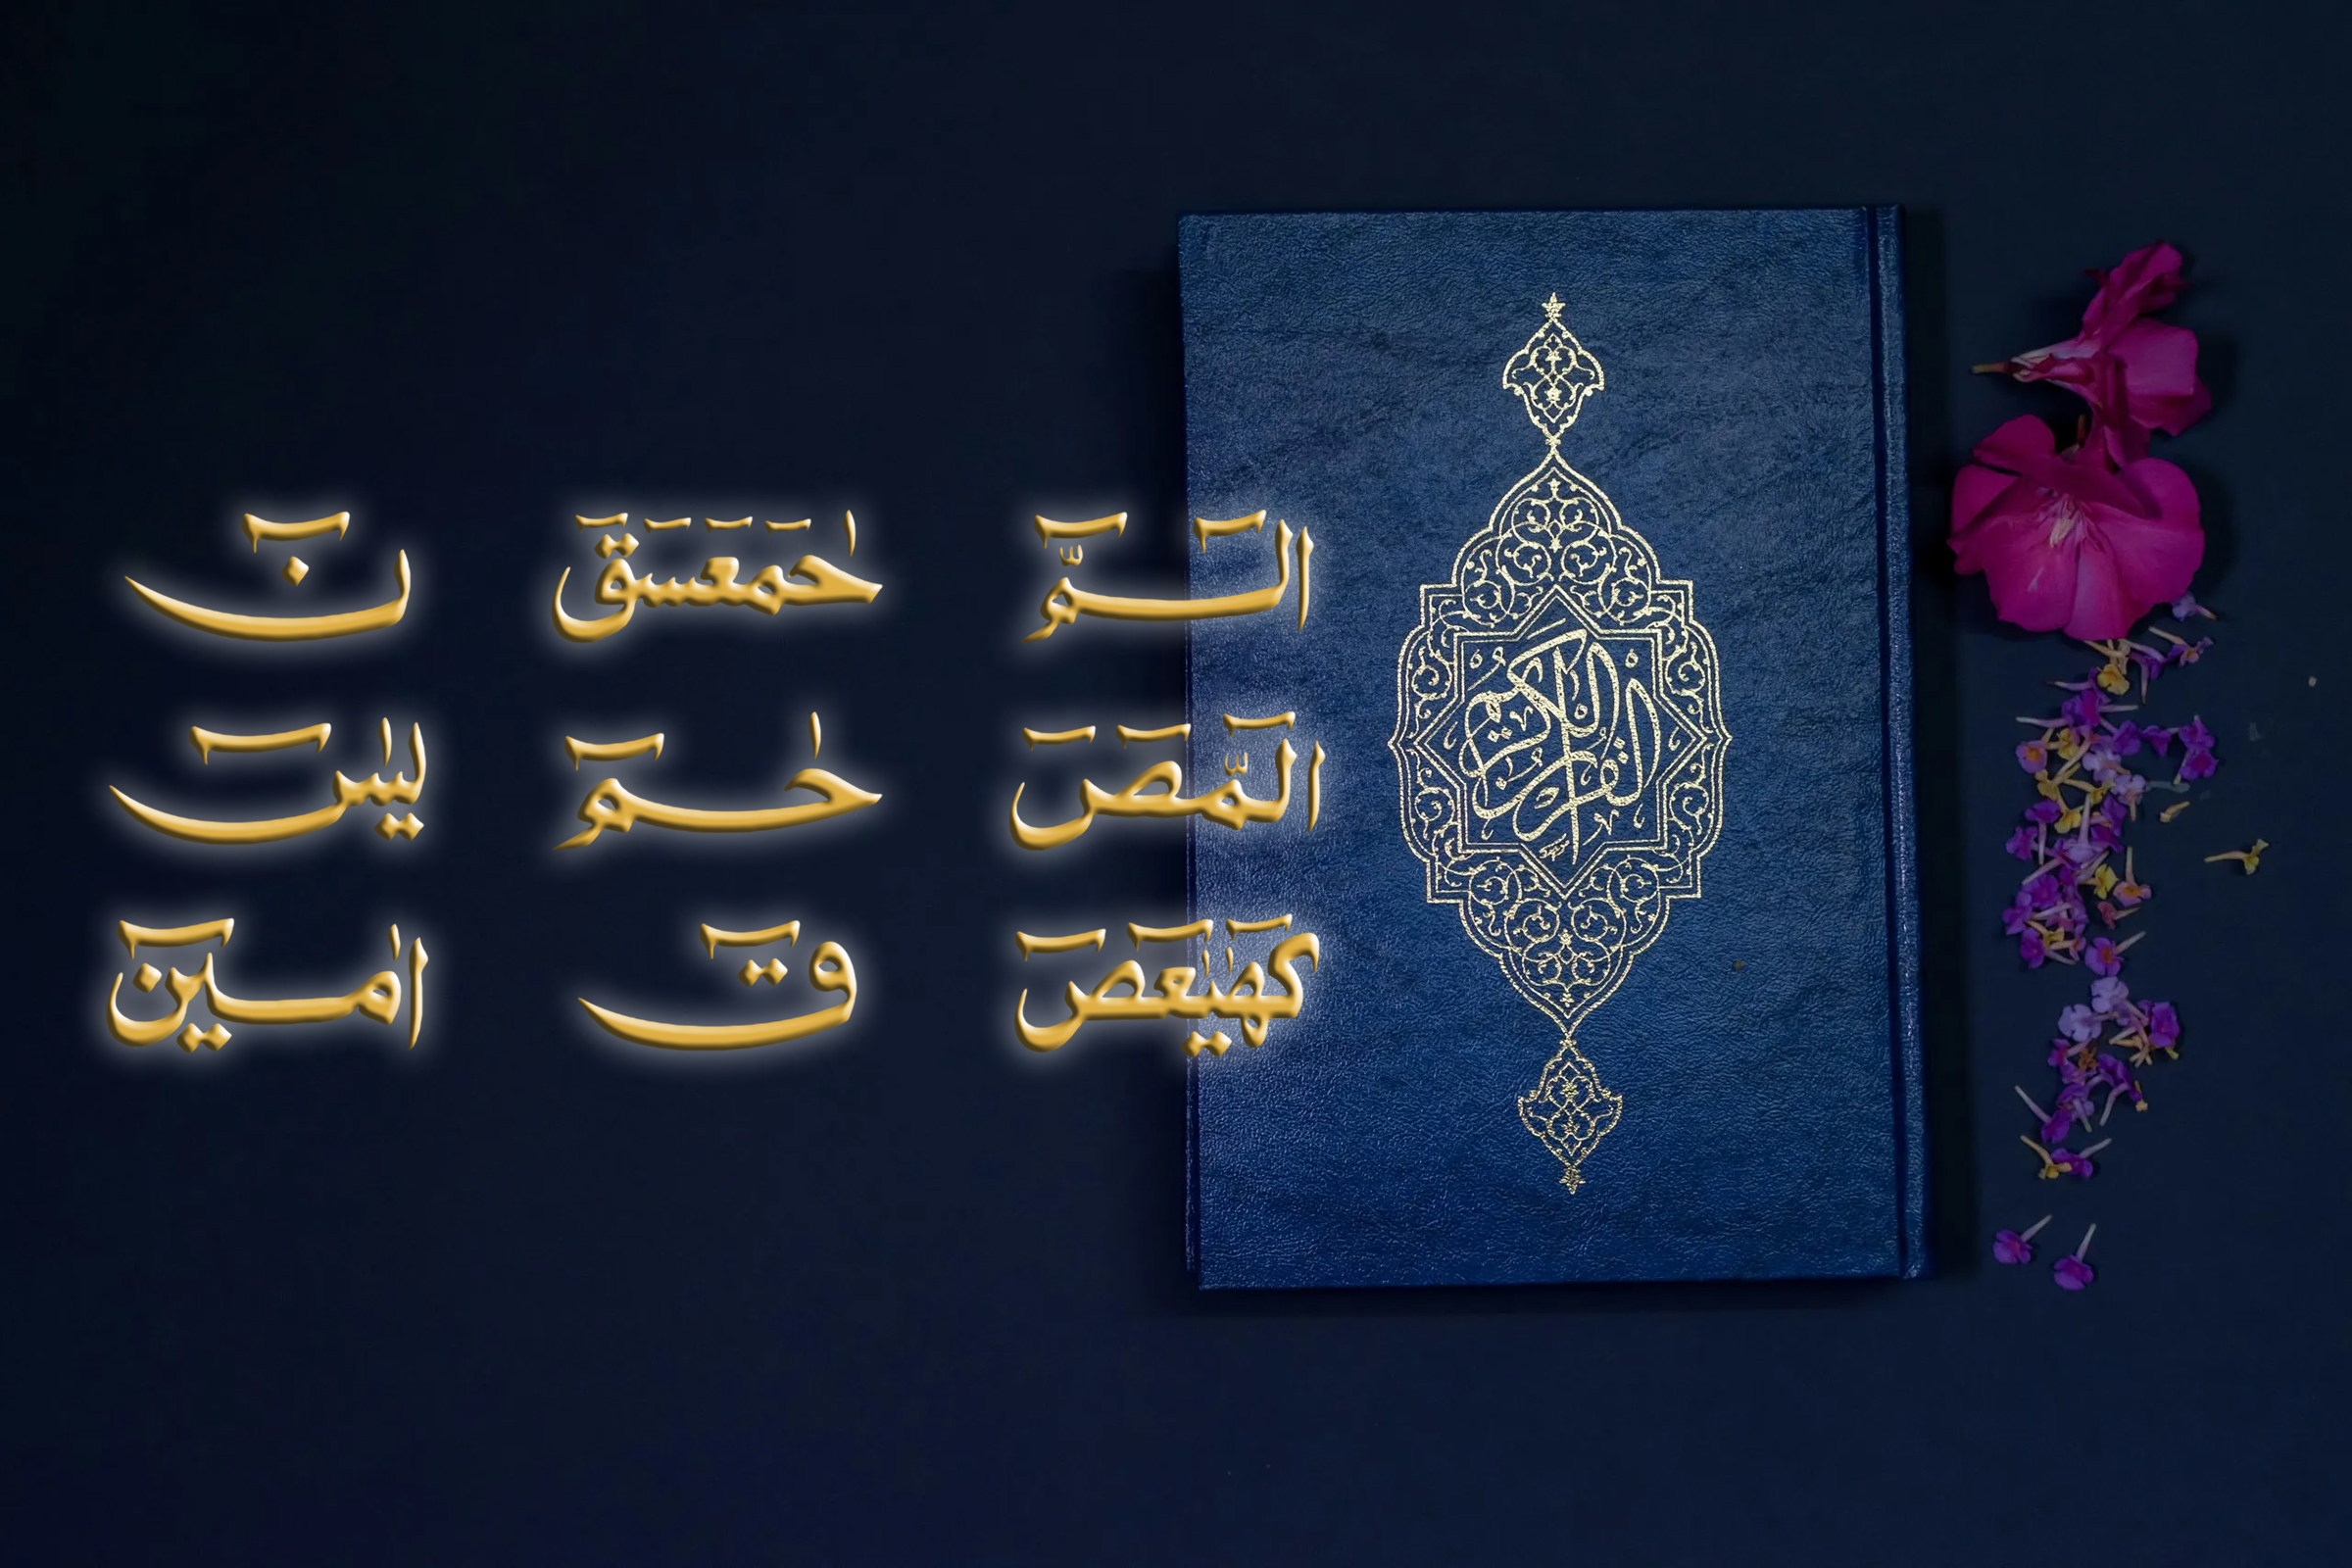 الٓمّٓ حٰمٓعٓسٓقٓ نٓ
الٓمّٓصٓ حٰمٓ يٰسٓ
كٓهٰيٰعٓصٓ قٓ اٰمين
القرآن الكريم